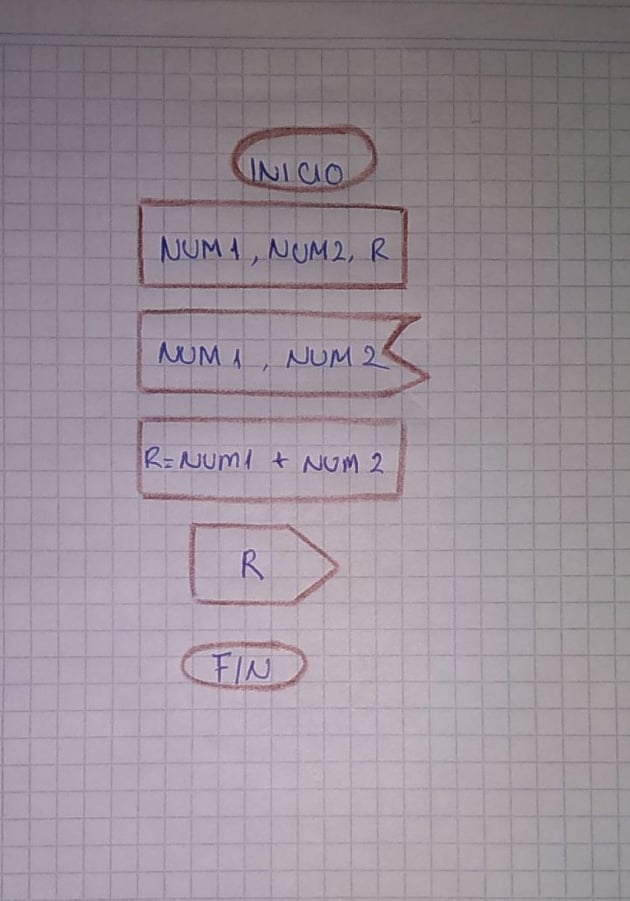 INICIO
NUM1, NUM2, R
NUM1, NUM2
R=NUM1 + NUM2
R
FIN